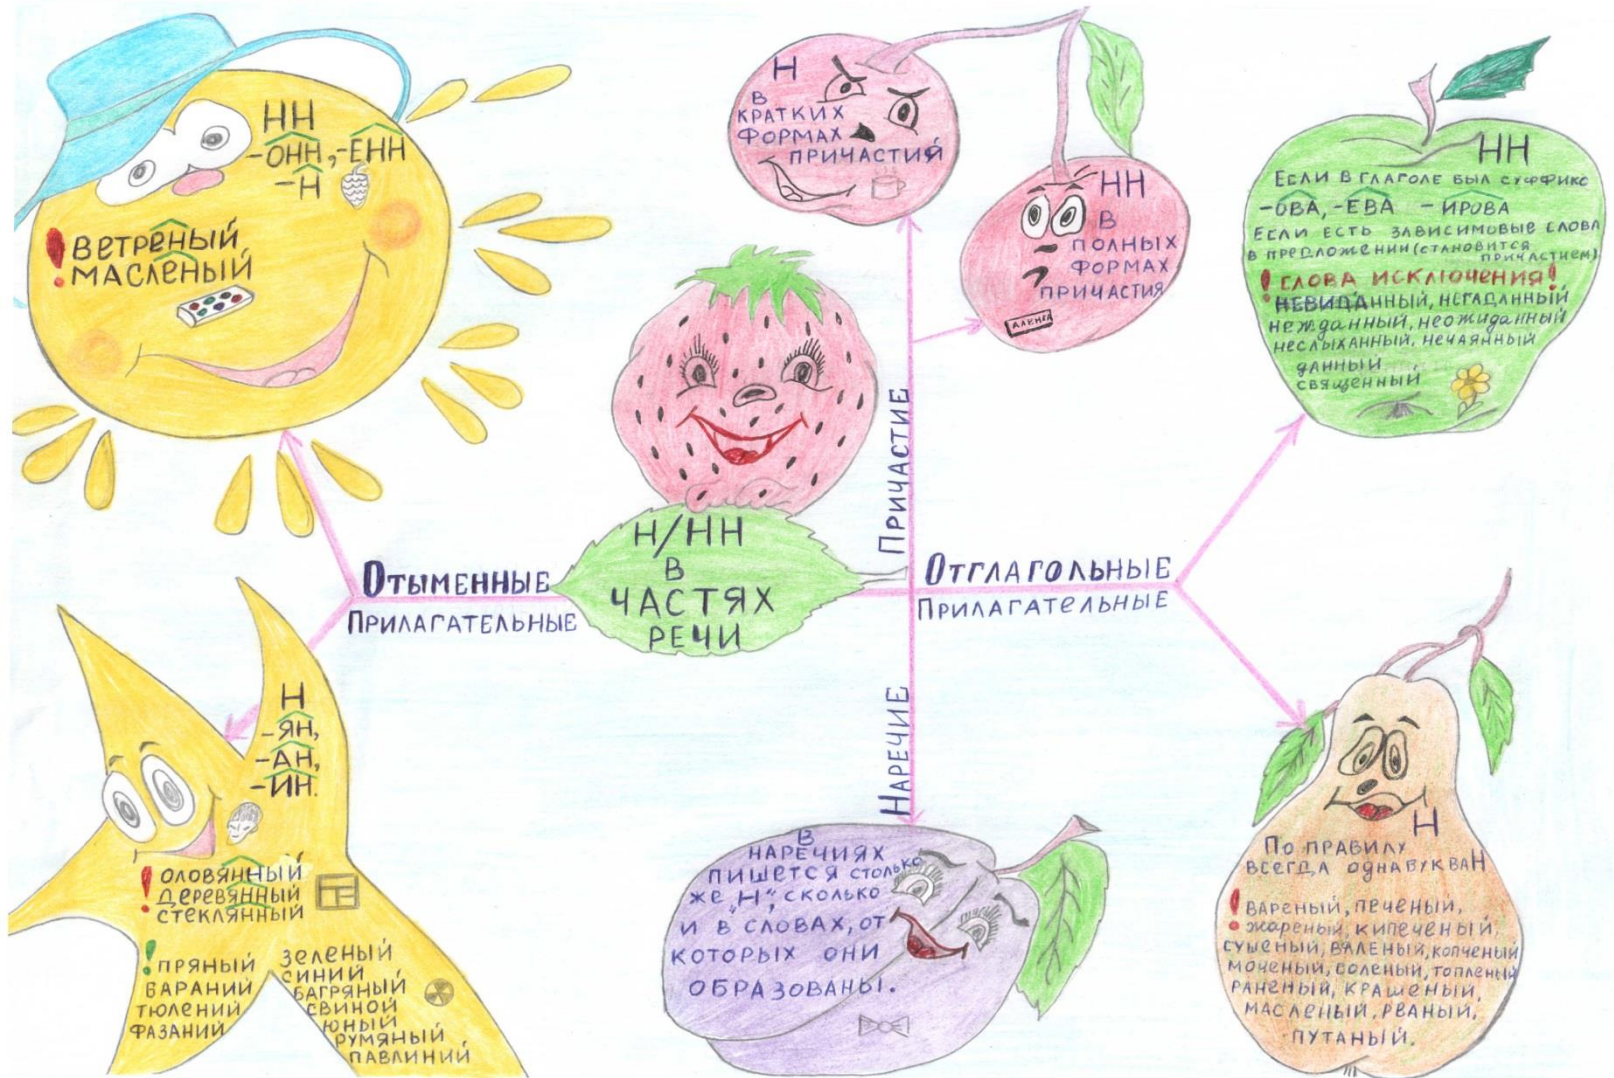 НН
-ОНН,-ЕНН
-Н
! ВЕТРЕНЫЙ
МАСЛЕНЫЙ
Н
В
КРАТКИХ
ФОРМАХ
ПРИЧАСТИЙ
НН
В
ПОЛНЫХ
ФОРМАХ
ПРИЧАСТИЯ
АЛЕНКА
НН
ЕСЛИ В ГЛАГОЛЕ БЫЛ СУФФИКС
-ОВА, -ЕВА -ИРОВА
ЕСЛИ ЕСТЬ ЗАВИСИМОВЫЕ СЛОВА
В ПРЕДЛОЖЕНИИ(СТАНОВИТСЯ
ПРИЧАСТИЕМ)
! СЛОВА ИСКЛЮЧЕНИЯ!
НЕВИДАННЫЙ, НЕГАДАННЫЙ
НЕЖДАННЫЙ, НЕОЖИДАННЫЙ
НЕСЛЫХАННЫЙ, НЕЧАЯННЫЙ
ДАННЫЙ
СВЯЩЕННЫЙ
Н/НН
В
ЧАСТЯХ
РЕЧИ
ОТЫМЕННЫЕ
ПРИЛАГАТЕЛЬНЫЕ
ПРИЧАСТИЕ
ОТГЛАГОЛЬНЫЕ
ПРИЛАГАТЕЛЬНЫЕ
НАРЕЧИЕ
Н
-ЯН,
-АН,
-ИН.
! ОЛОВЯННЫЙ
ДЕРЕВЯННЫЙ
СТЕКЛЯННЫЙ
! ПРЯНЫЙ
БАРАНИЙ
ТЮЛЕНИЙ
ФАЗАНИЙ
ЗЕЛЕНЫЙ
СИНИЙ
БАГРЯНЫЙ
СВИНОЙ
ЮНЫЙ
РУМЯНЫЙ
ПАВЛИНИЙ
В
НАРЕЧИЯХ
ПИШЕТСЯ СТОЛЬКО
ЖЕ „Н", СКОЛЬКО
И В СЛОВАХ, ОТ
КОТОРЫХ ОНИ
ОБРАЗОВАНЫ.
Н
ПО ПРАВИЛУ
ВСЕГДА ОДНА БУКВА Н
! ВАРЕНЫЙ, ПЕЧЕНЫЙ,
ЖАРЕНЫЙ, КИПЕЧЕНЫЙ,
СУШЕНЫЙ, ВЯЛЕНЫЙ, КОПЧЕНЫЙ
МОЧЕНЫЙ, СОЛЕНЫЙ, ТОПЛЕНЫЙ
РАНЕНЫЙ, КРАШЕНЫЙ,
МАСЛЕНЫЙ, РВАНЫЙ,
ПУТАНЫЙ.